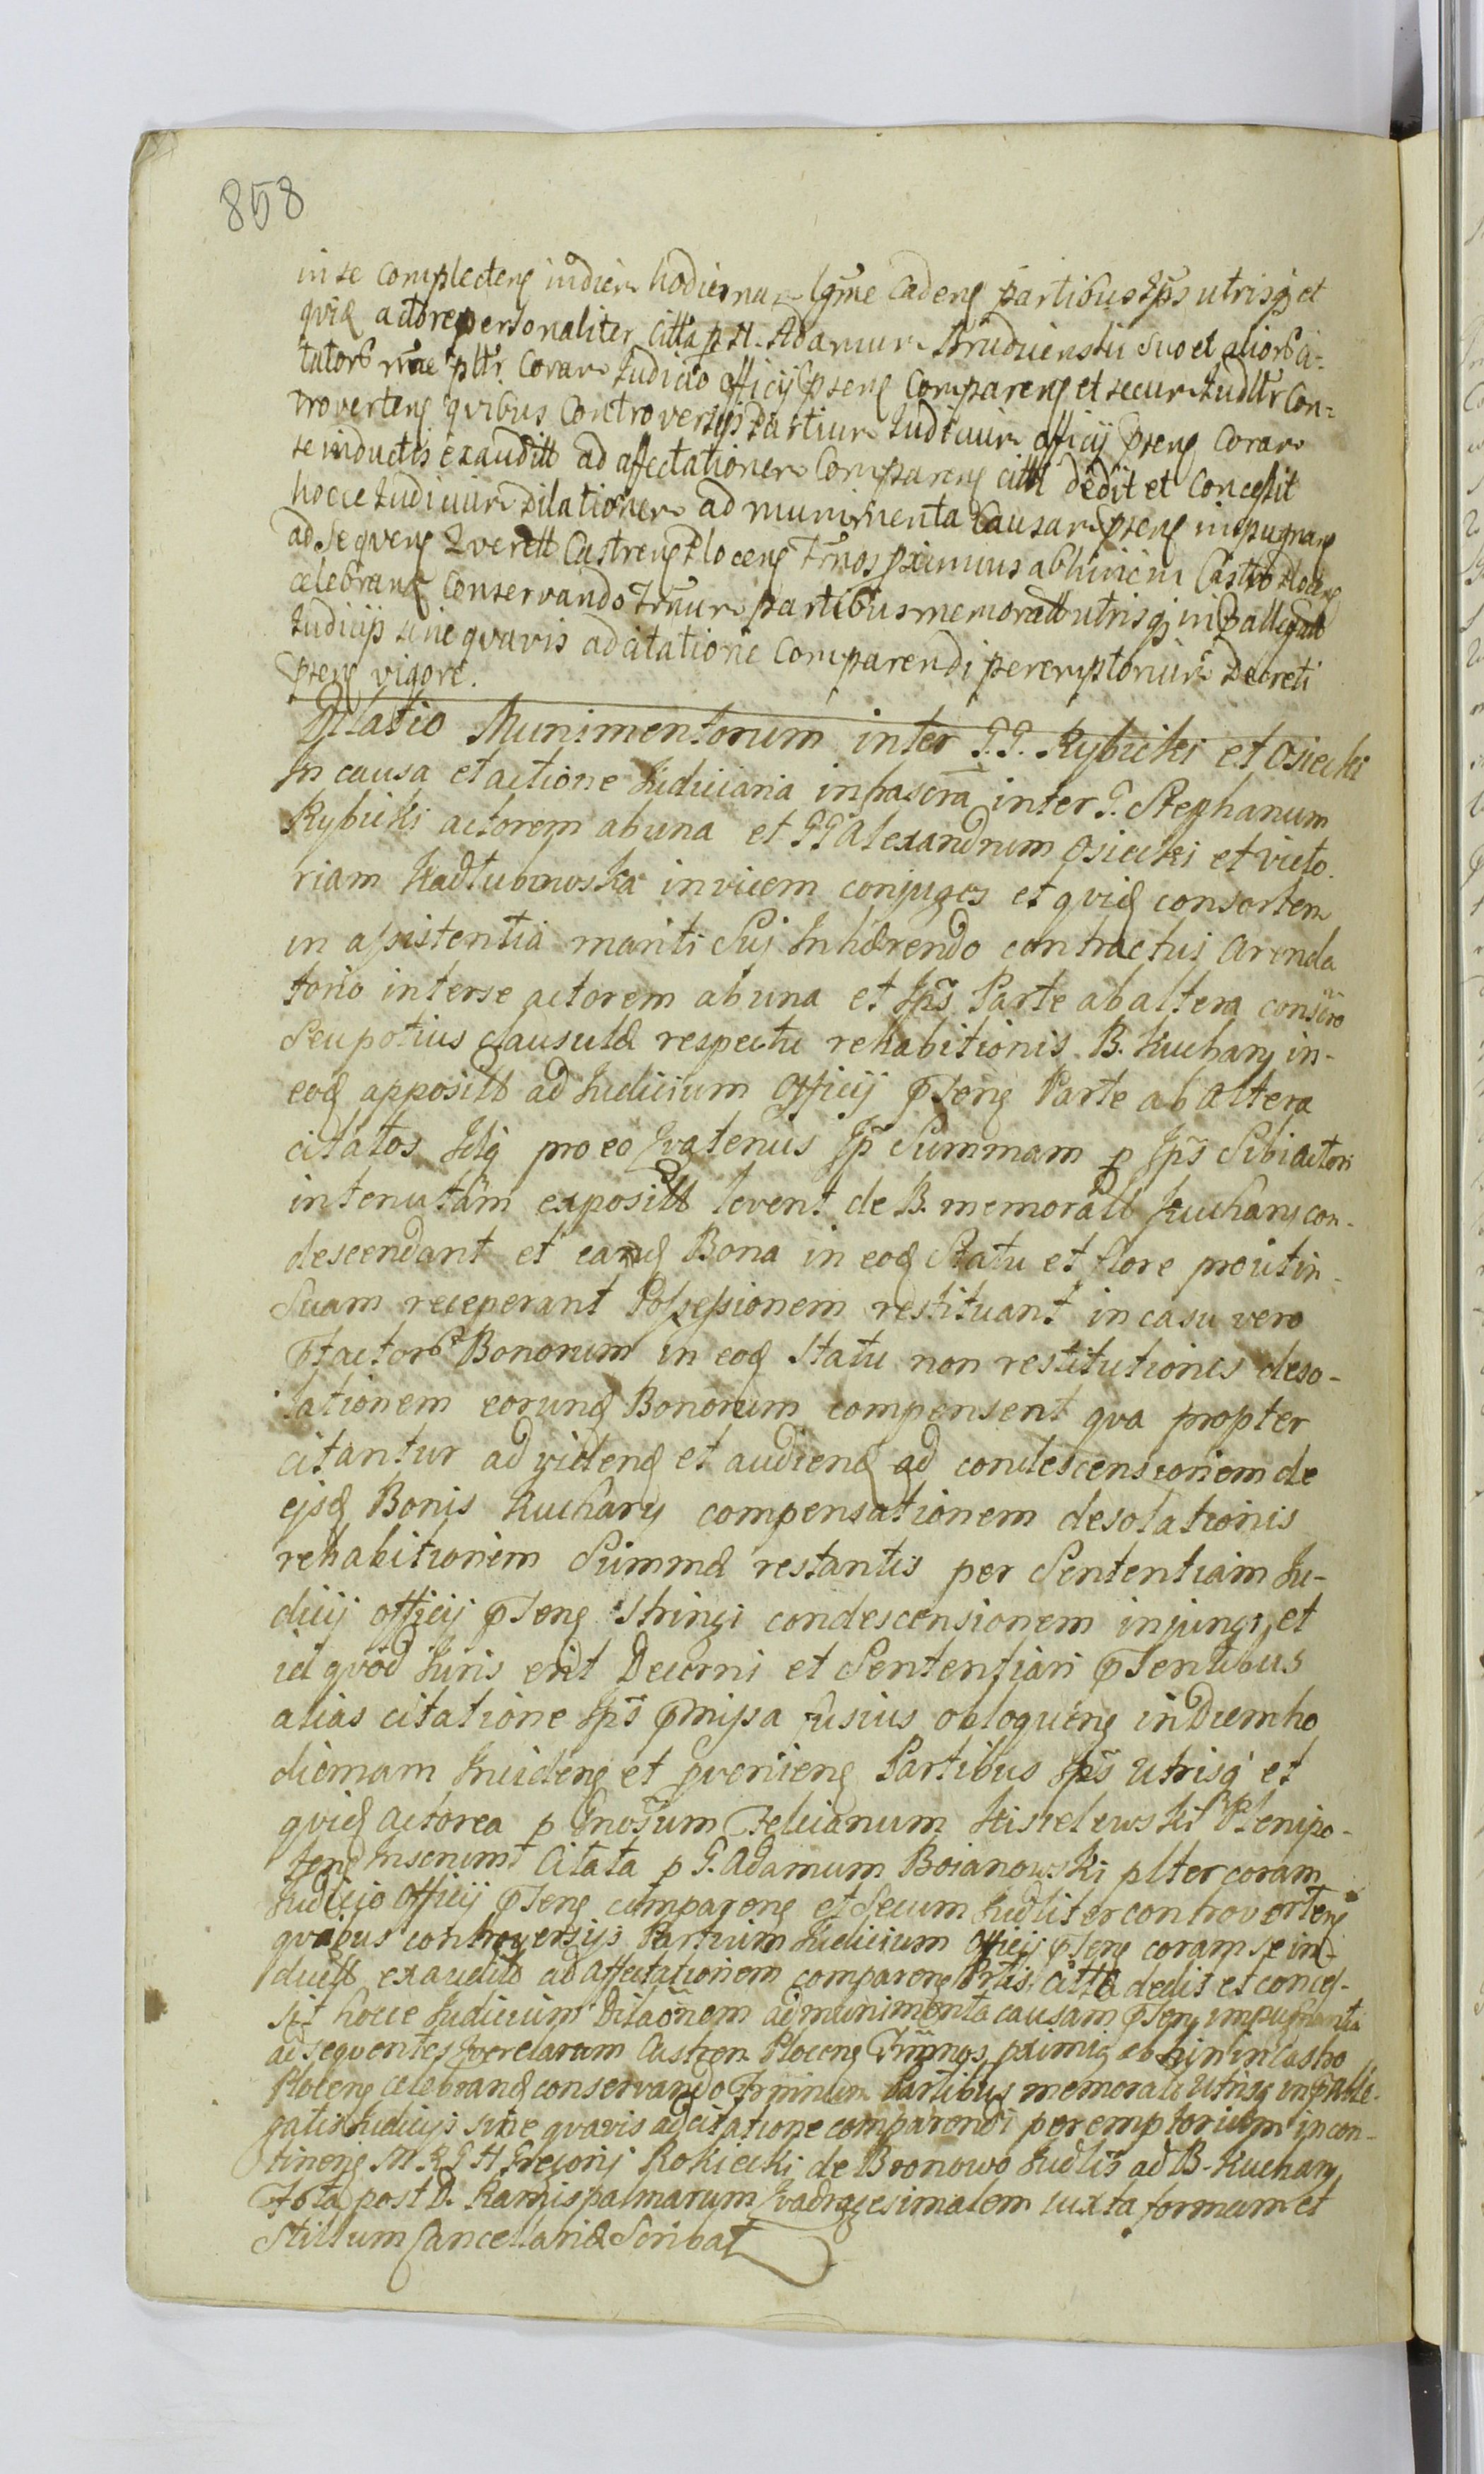 858
in se complecteng in diem hodiernam lgme cadeng partibus Jps utrisq et
qvid actore personaliter citta p N. Adamum suo et aliorb ci-
tatorb nne pltr. coram Judicio officij Pseng compareng et secum Judltr con-
troverteng qvibus controversijs Partium Judicium officij Pseng coram
se inductis exauditt ad affectationem compareng citt dedit et concessit
hocce Judicium Dilationem ad munimenta causam Pseng inpugnang
ad seqveng Qverell Castreng Ploceng Trnos pximius abhinc in Castro Ploceng
celebrand conservando Trnum partibus memoratt utrisq in Pallegatt
Judicijs sine qvavis adcitatione comparendi peremptorium Decreti
Pseng vigore.
Dilatio Munimentorum inter G.G. Rybicki et Osiecki
In causa et actione Judiciaria infrascra inter G. Stephanum
Rybicki actorem ab una et GG Alexandrum Osiecki et Victo-
riam Kadłubowska invicem conjuges et qvid consortem
in assistentia mariti Suj Inhærendo contractui arenda
torio inter se actorem ab una et Jps Parte ab altera conscro
Seu potius clausulæ respectu rehabitionis B. Kuchary in-
eod appositt ad Judicium Officij Pseng Parte ab altera
citatos Idq pro eo Qvatenus Jp Summam p Jps Sibi actori
intenutam expositt levent de B. memoratt Kuchary con-
descendant et eand Bona in eod Statu et flore prout in-
Suam receperant Possessionem restituant in casu vero
Ptactorb Bonorum in eod Statu non restitutionis deso-
lationem eorund Bonorum compensent qva propter
citantur ad videnđ et audiend ad condescensionem de
ejsd Bonis Kuchary compensationem desolationis
rehabitionem Summæ restantis per Sententiam Ju-
dicij officij Pseng stringi condescensionem injungi et
id qvod Juris erit Decerni et Sententiari Psentibus
alias citatione Jps Pmissa fusius obloqueng in Diem ho
diernam Incideng et pvenieng Partibus Jps Utrisq et
qvid actorea p Gnosum Felicianum Kisielewski Plenipo-
teng Citata p G. Adamum Boianowski plter coram
Judicio Officij Pseng compareng et Secum Judliter controverteng
qvibus controversijs Partium Judicium Officij Pseng coram se in-
ductt exaudito ad affectationem compareng Prtis citta dedit et conces-
sit hocce Judicium Dilaonem ad munimenta causam Pseng impugnantia
ad seqventes Qverelarum Castren Ploceng Trminos pximis abhin in Castro
Ploceng celebrand conservando Trminum Partibus memoratt Utrisq in Palle-
gatis Judicijs sine qvavis adcitatione comparendi peremptorium in con-
tineng M R G H Gregorij Rokicki de Bronowo Judlis ad B. Kuchary
Fta post D. Ramispalmarum Qvadragesimalem iuxta formam et
Stillum Cancellariæ Scribat